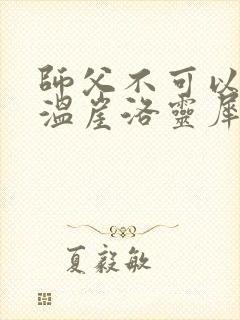 師父不可以
溫崖洛靈犀
夏毅敏